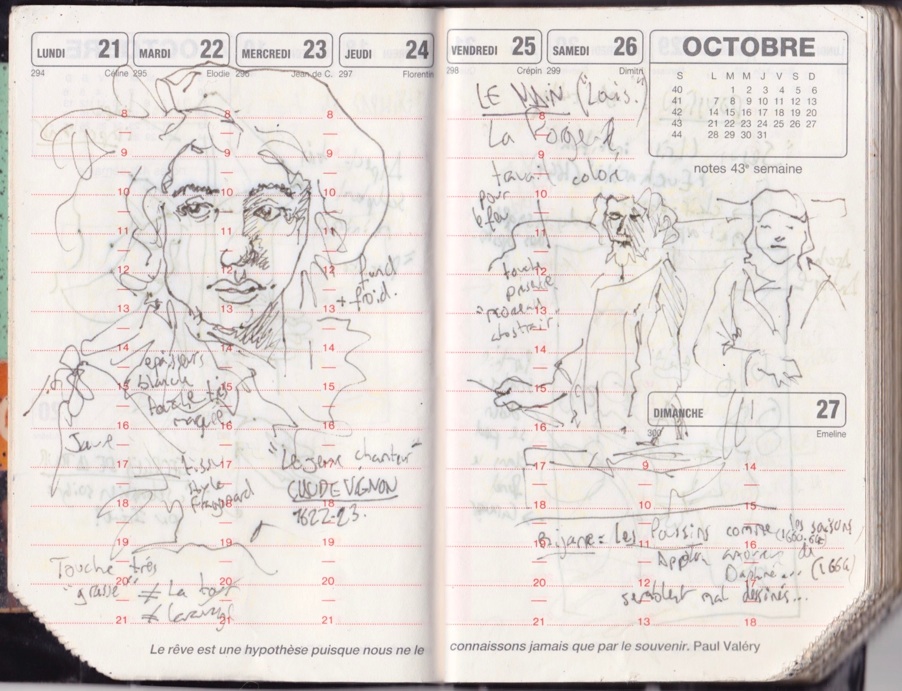 LUNDI 21
294 Céline
MARDI 22
295 Elodie
MERCREDI 23
296 Jean de C.
JEUDI 24
297 Florentin
8 8 8
9 9 9
10 10 10
11 11 11
12 12 12
13 13 13
14 14 14
15 15 15
16 16 16
17 17 17
18 18 18
19 19 19
20 20 20
21 21 21
fond
+ froid.
épaisseurs
blanche
touche très
Jaune
tissu
style
Fragonard
"Le jeune chanteur"
CLAUDE VIGNON
1622-23.
Touche très
"grasse" ≠ La Tour
≠
Le rêve est une hypothèse puisque nous ne le
VENDREDI 25
298 Crépin
SAMEDI 26
299 Dimitri
OCTOBRE
S L M M J V S D
40 1 2 3 4 5 6
41 7 8 9 10 11 12 13
42 14 15 16 17 18 19 20
43 21 22 23 24 25 26 27
44 28 29 30 31
notes 43e semaine
LE NAIN (Louis.)
La
travail
pour
touche
8
9
10
11
12
13
14
15
16
17
18
19
20
21
DIMANCHE 27
300 Emeline
9 14
10 15
11 16
12 17
13 18
Bizarre = les Poussins comme les saisons
(1660-64)
Apollon amoureux de
Daphné... (1664)
semblent mal dessinés...
connaissons jamais que par le souvenir. Paul Valéry